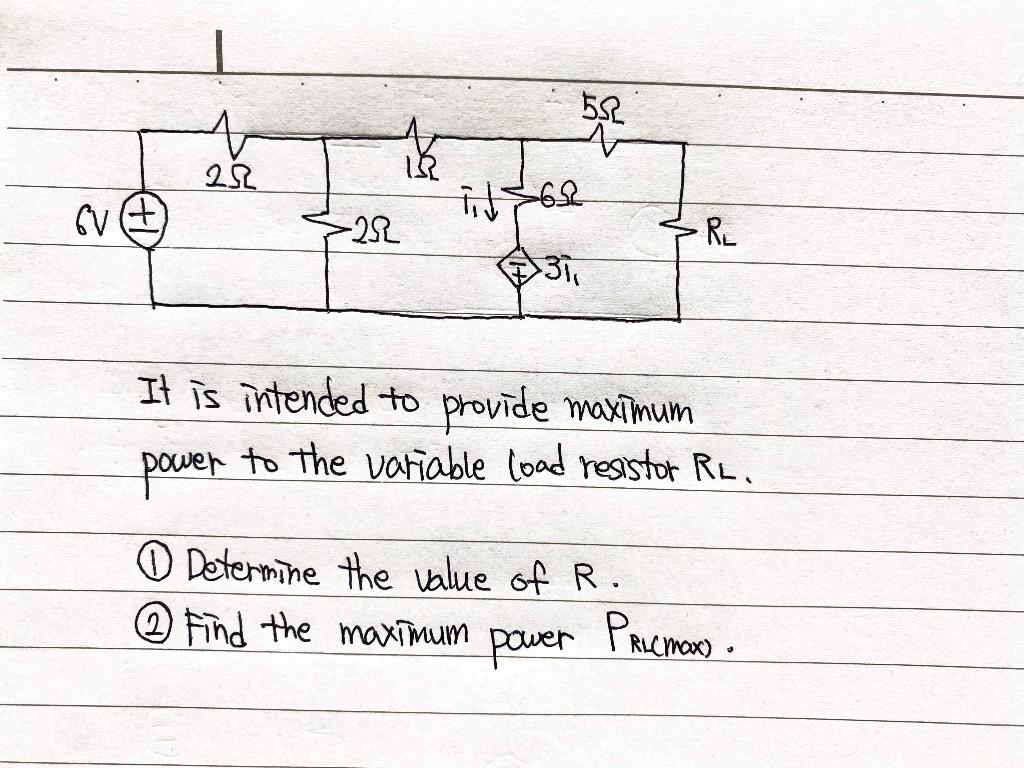 5Ω
2Ω
1Ω
6V
2Ω
i₁
6Ω
3i₁
RL
It is intended to provide maximum
power to the variable load resistor RL.
① Determine the value of R.
② Find the maximum power PRL(max).